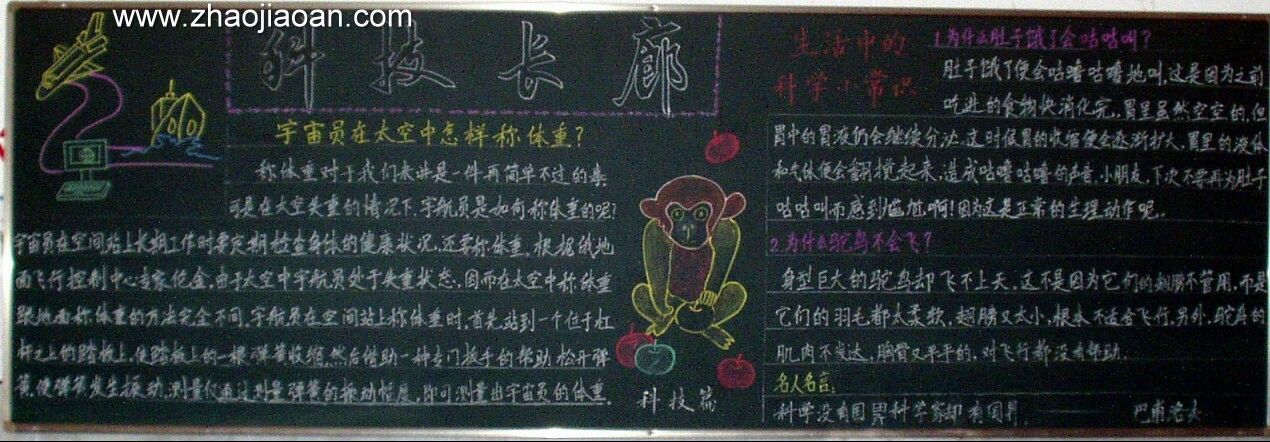 www.zhaojiaoan.com
科技长廊
宇宙员在太空中怎样称体重?
称体重对于我们来讲是一件再简单不过的事,
可是在太空失重的情况下,宇航员是如何称体重的呢?
宇宙员在空间站上长期工作时要定期检查身体的健康状况,还要称体重。根据俄地
面飞行控制中心专家化念,由于太空中宇航员处于失重状态,因而在太空中称体重
跟地面称体重的方法完全不同。宇航员在空间站上称体重时,首先站到一个位于杠
杆之上的踏板上,使踏板上的一根弹簧收缩,然后借助一种专门板手的帮助松开弹
簧,使弹簧发生振动,测量仪通过测量弹簧的振动幅度,即可测量出宇宙员的体重。
科技篇
生活中的
科学小常识
1.为什么肚子饿了会咕咕叫?
肚子饿了便会咕噜咕噜地叫,这是因为之前
吃进的食物快消化完,胃里虽然空空的,但
胃中的胃液仍会继续分泌。这时候胃的收缩便会逐渐扩大,胃里的液体
和气体便会翻搅起来,造成咕噜咕噜的声音。小朋友,下次不要再为肚子
咕咕叫而感到尴尬啊!因为这是正常的生理动作呢。
2.为什么鸵鸟不会飞?
身型巨大的鸵鸟却飞不上天,这不是因为它们的翅膀不管用,而是
它们的羽毛都太柔软,翅膀又太小,根本不适合飞行,另外,鸵鸟的
肌肉不发达,胸骨又平平的,对飞行都没有帮助。
名人名言:
科学没有国界科学家却有国界 —— 巴甫洛夫